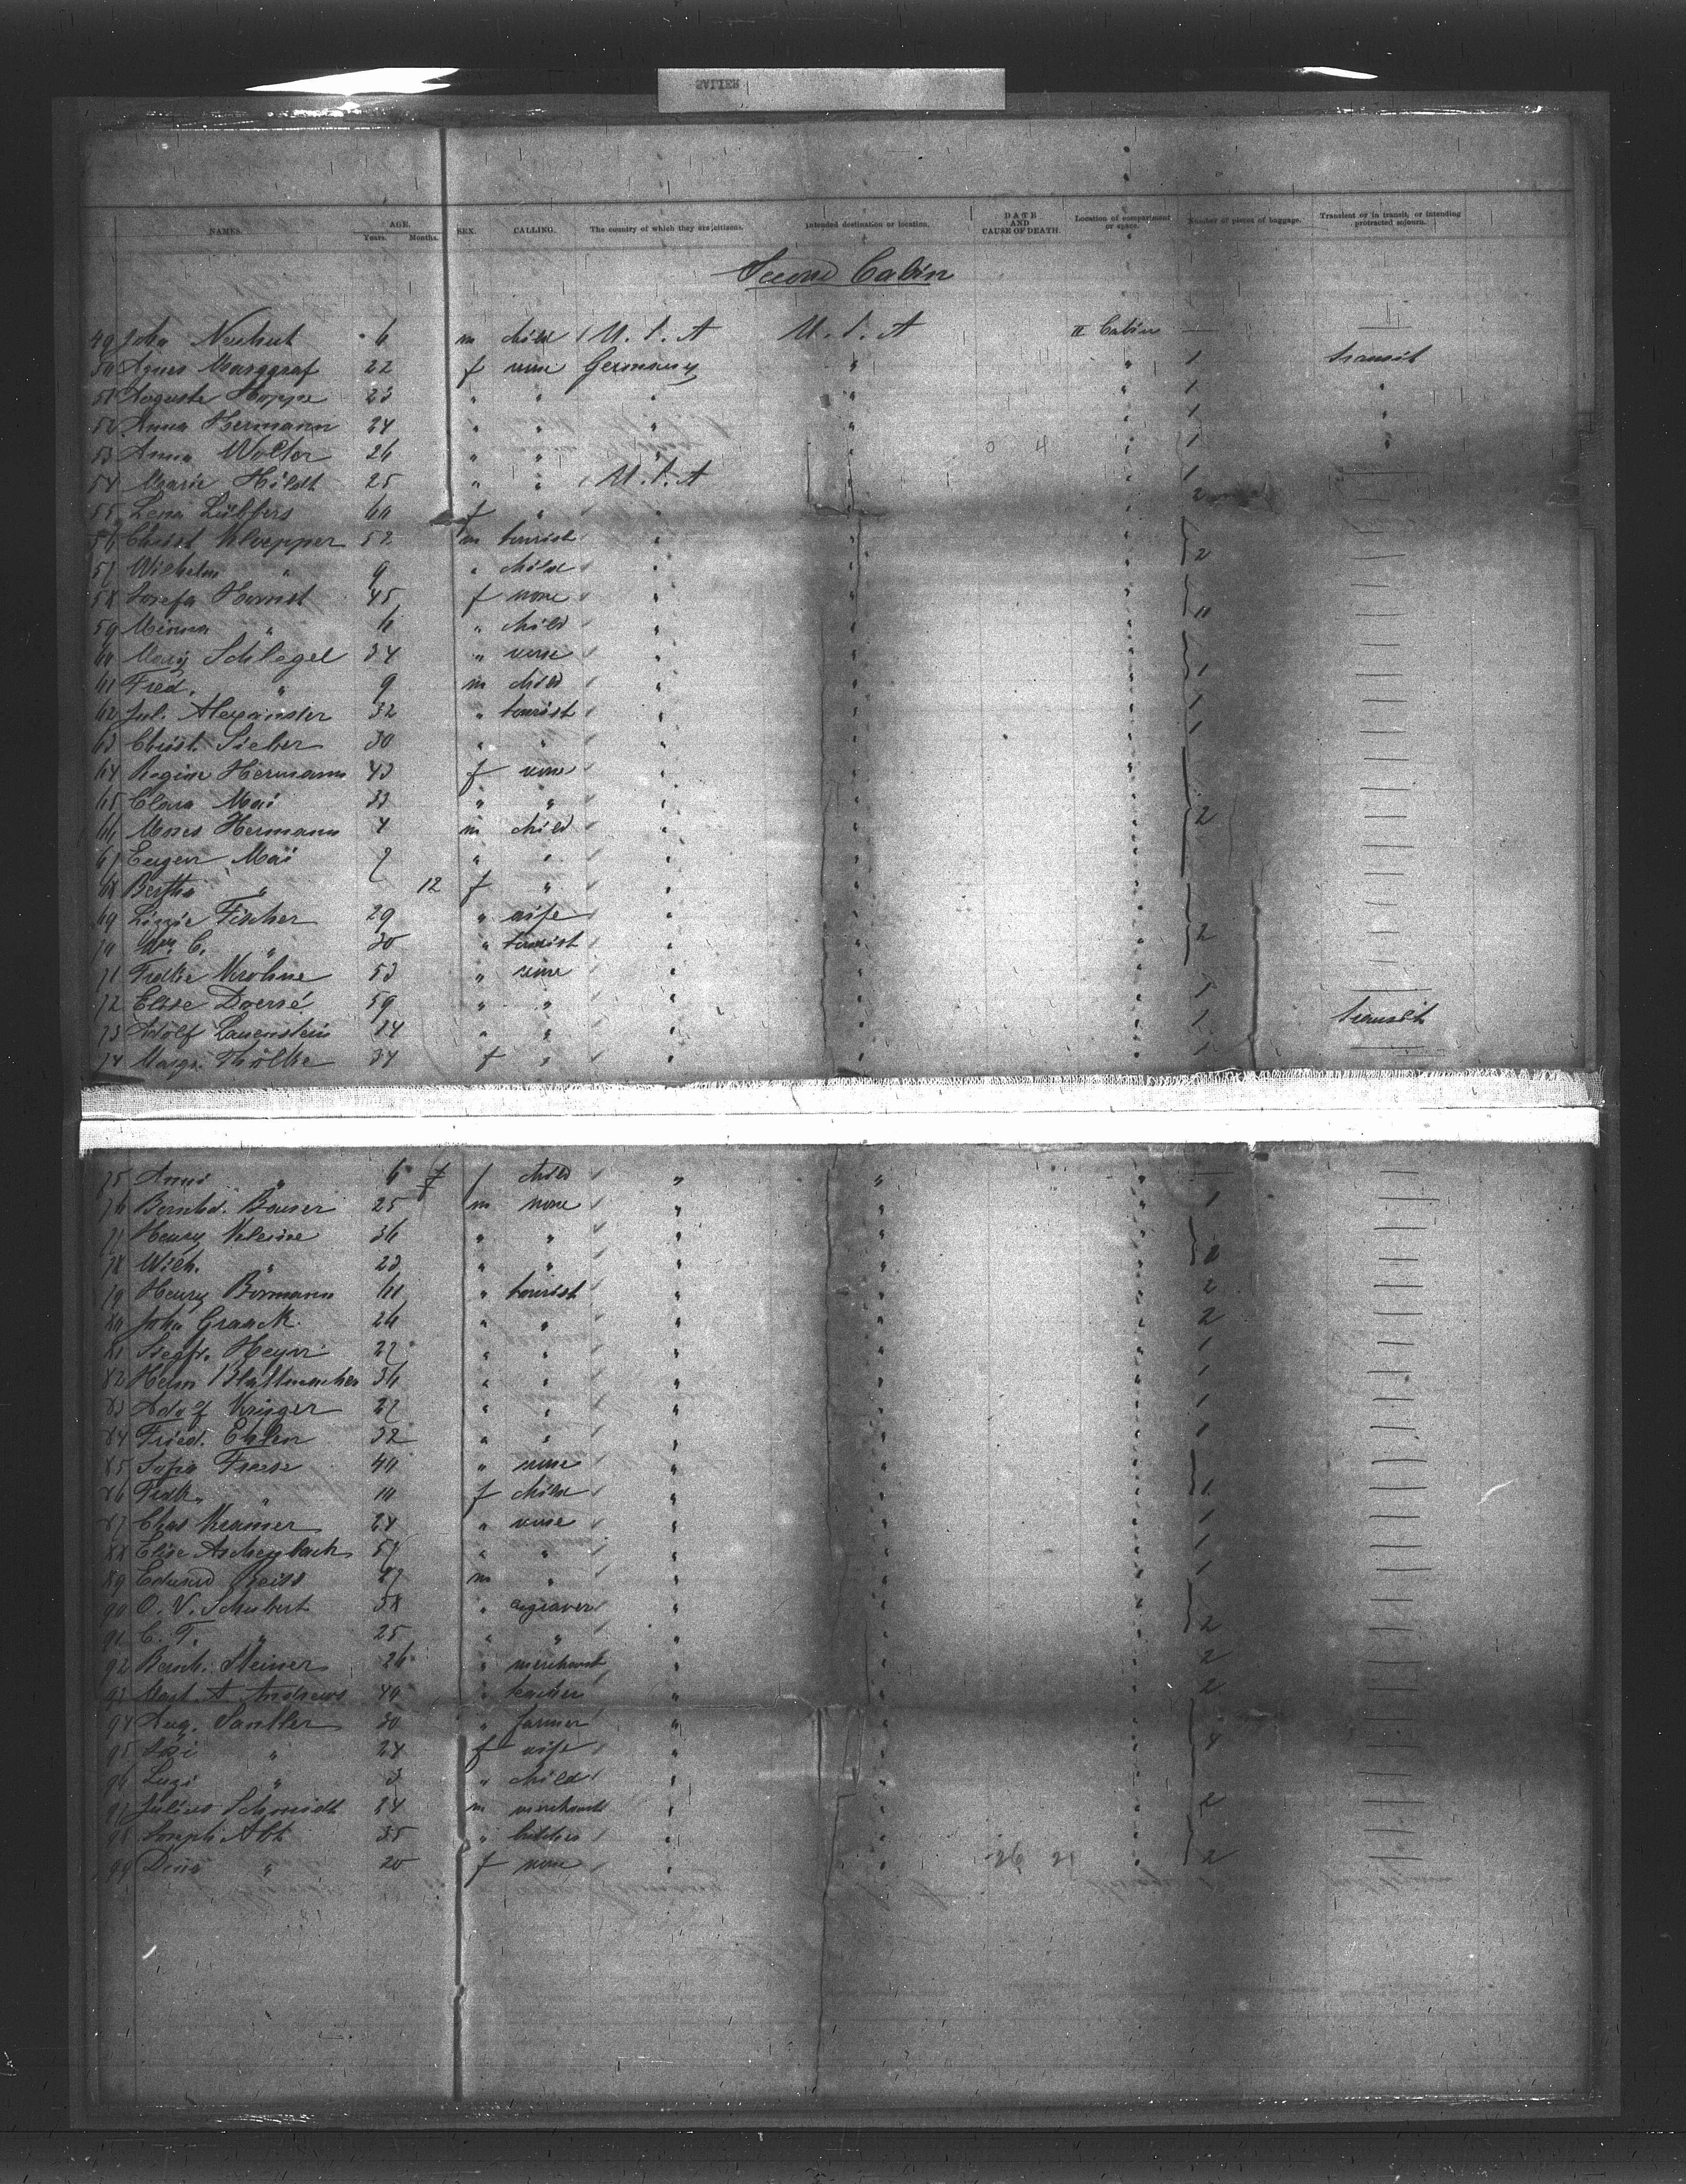 NAMES. AGE. Years. Months. SEX. CALLING. The country of which they are citizens. Intended destination or location. DATE AND CAUSE OF DEATH. Location of compartment or space. Number of pieces of baggage. Transient or in transit, or intending protracted sojourn.
Second Cabin
49 John 6 m child U.S.A U.S.A II Cabin —
50 Agnes Marggraf 22 f none Germany " " 1 transit
51 Auguste Hoppe 23 " " " " " 1 "
52 Anna Hermann 24 " " " " " 1 "
53 Anna Wolter 26 " " " " " 1 "
54 Marie Hildt 25 " " U.S.A " " 1
55 Lena Lübbers f " " " " 2
56 Christ Kloepper 52 m tourist " " "
57 Wilhelm " 9 " child " " " 2
58 Josefa Hornst 45 f none " " "
59 Minna " " child " " "
60 Mary Schlegel 34 " none " " "
61 Fred. " 9 m child " " " 1
62 Jul. Alexander 32 " tourist " " " 1
63 Christ. Sieber 30 " " " " " 1
64 Regine Hermann 43 f none " " "
65 Clara Mai 33 " " " " "
66 Moses Hermann 4 m child " " " 2
67 Eugen Mai " " " " "
68 Bertha " 12 f " " " "
69 Lizzie Fischer 29 " wife " " "
70 Wm. C. " 30 " tourist " " " 2
71 Fredke Krohne 53 " none " " " —
72 Elise Doerré 59 " " " " " 1 —
73 Adolf Lauenstein 24 " " " " " 1 transit
74 Margr. Thölke 34 f " " " " 1 —
75 Anni " 6 f child " " " — —
76 Bernhd. Bauser 25 m none " " " 1 —
77 Henry Kleine 36 " " " " " —
78 Wilh. " 23 " " " " " 2 —
79 Henry Bormann " tourist " " " 2 —
80 John Graack 26 " " " " " 2 —
81 Siegfr. Heyn 27 " " " " " 1 —
82 Herm 36 " " " " " 1 —
83 Adolf Krieger 27 " " " " " 1 —
84 Fried. Ehlen 32 " " " " " 1 —
85 Freese " none " " " —
86 Fredk. " 10 f child " " " 1 —
87 Chas Kramer 24 " none " " " 1 —
88 Elise " " " " " 1 —
89 Eduard 27 m " " " " 1 —
90 O. V. Schubert 38 " " " " —
91 C. T. " 25 " " " " " 2 —
92 Steiner 26 " merchant " " " 2 —
93 A. Andrews 40 " teacher " " " 2 —
94 Aug. Santler 30 " farmer " " " —
95 " 24 f wife " " " 4 —
96 Luzi " 3 " child " " " —
97 Julius Schmidt 24 m merchant " " " 2 —
98 Joseph Abt 35 " butcher " " " —
99 Dina " 20 f none " " " 2 —